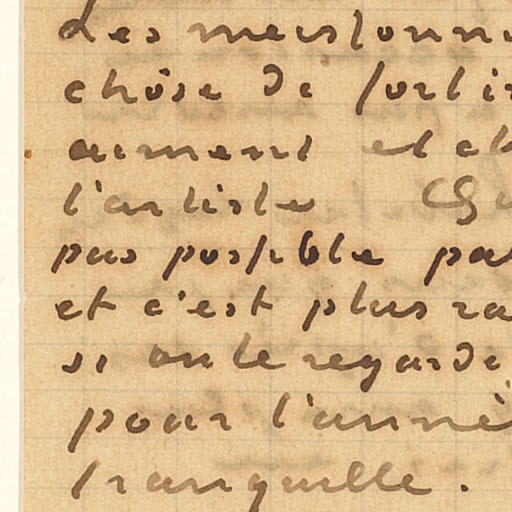 Les meistonn
chôse de sorti
aiment et ch
l'artiste Ga
pas possible pas
et c'est plus ra
si on le regarde
pour l'anné
tranquille.